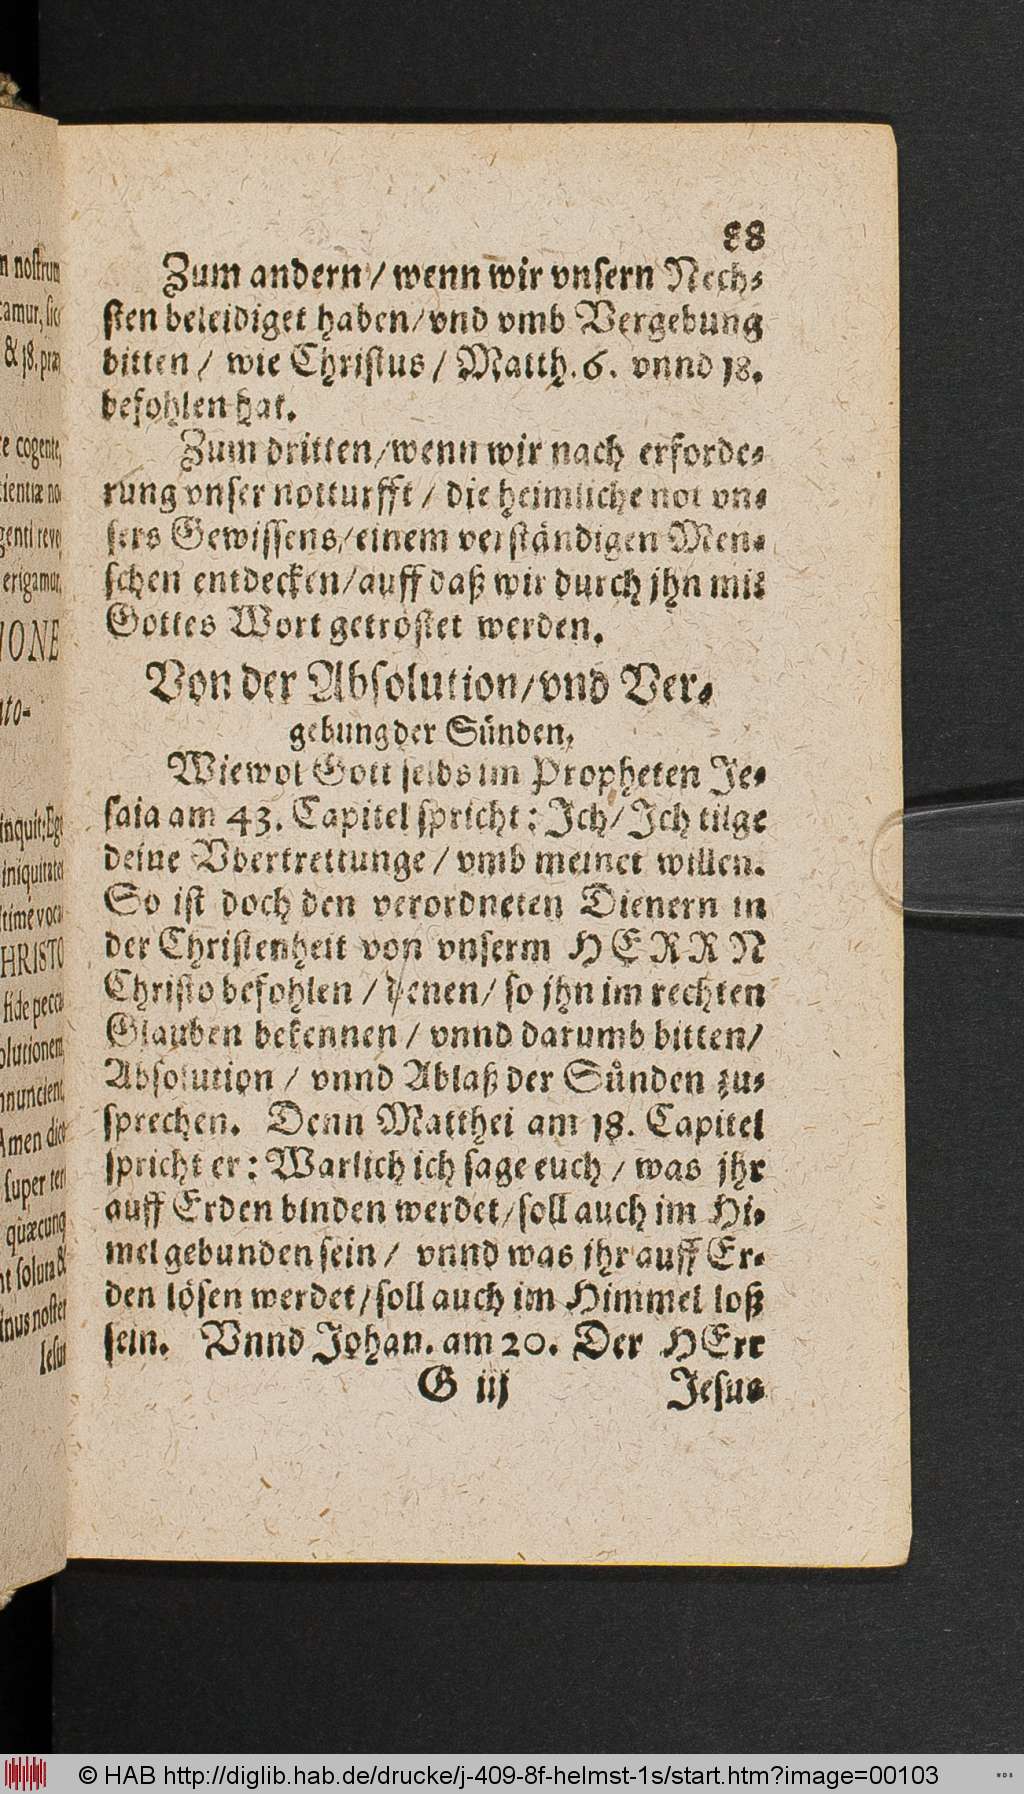 88
Zum andern / wenn wir vnsern Nech-
sten beleidiget haben / vnd vmb Vergebung
bitten / wie Christus / Matth. 6. vnnd 18.
befohlen hat.
Zum dritten / wenn wir nach erforde-
rung vnser notturfft / die heimliche not vn-
sers Gewissens / einem verständigen Men-
schen entdecken / auff daß wir durch jhn mit
Gottes Wort getröstet werden.
Von der Absolution / vnd Ver-
gebung der Sünden.
Wiewol Gott selbs im Propheten Je-
saia am 43. Capitel spricht: Ich / Ich tilge
deine Vbertrettunge / vmb meinet willen.
So ist doch den verordneten Dienern in
der Christenheit von vnserm HERRN
Christo befohlen / denen / so jhn im rechten
Glauben bekennen / vnnd darumb bitten /
Absolution / vnnd Ablaß der Sünden zu-
sprechen. Denn Matthei am 18. Capitel
spricht er: Warlich ich sage euch / was jhr
auff Erden binden werdet / soll auch im Hi-
mel gebunden sein / vnnd was jhr auff Er-
den lösen werdet / soll auch im Himmel loß
sein. Vnnd Johan. am 20. Der HErr
G iij Jesus
nostrum
camur, sic
& 18. præ
cogente,
erigamur,
IONE
inquit: Ego
HRISTO
fide pecca
Amen dico
super ter
quæcunq
soluta &
noster
Iesus
© HAB http://diglib.hab.de/drucke/j-409-8f-helmst-1s/start.htm?image=00103